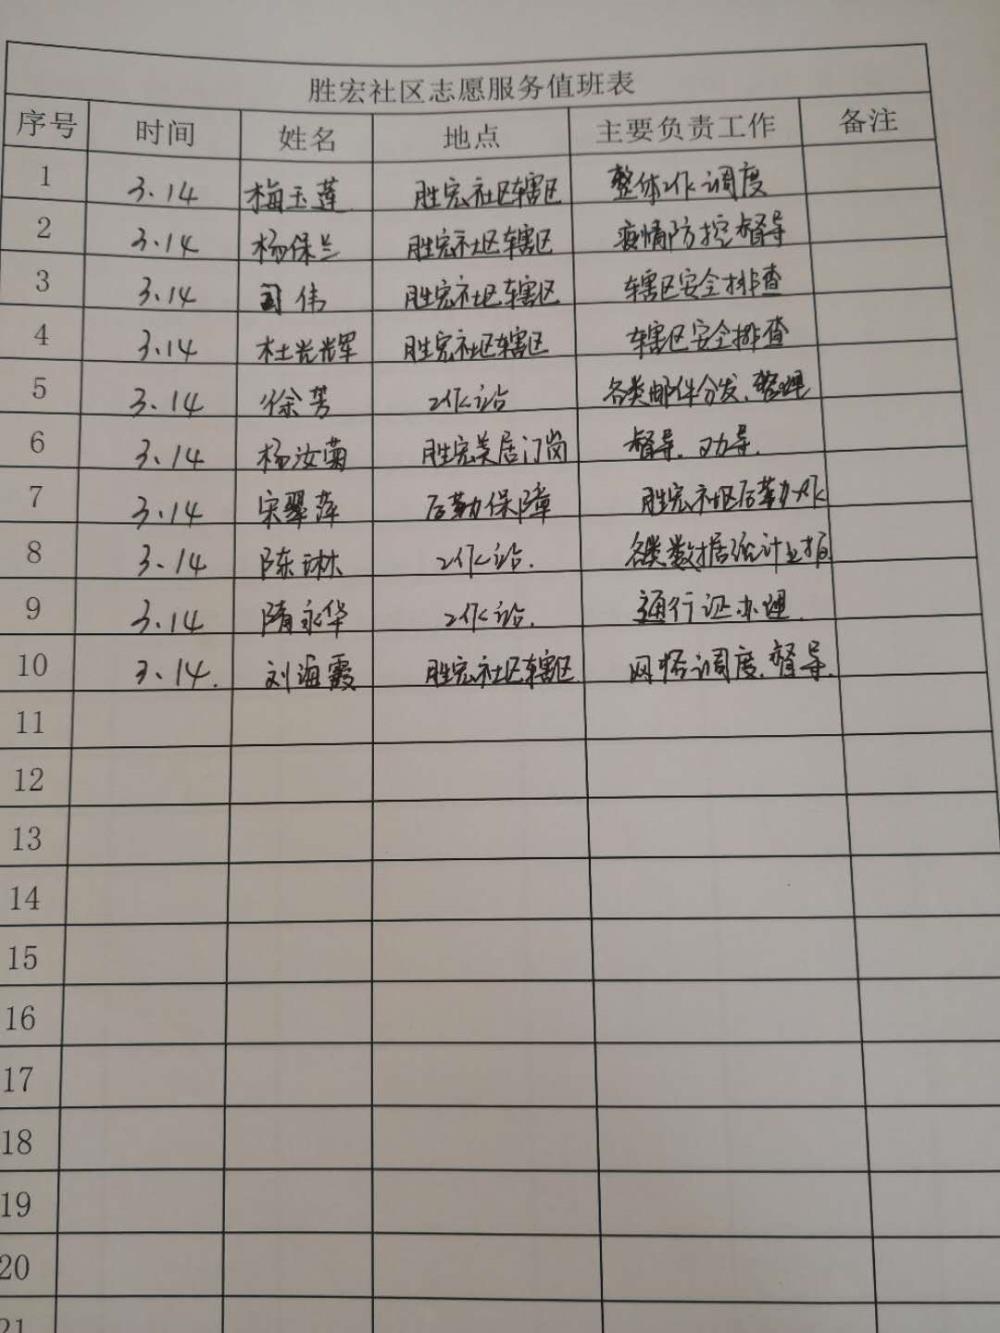 胜宏社区志愿服务值班表
序号 时间 姓名 地点 主要负责工作 备注
1 3.14 梅玉莲 胜宏社区辖区 整体工作调度
2 3.14 杨保兰 胜宏社区辖区 疫情防控督导
3 3.14 司伟 胜宏社区辖区 辖区安全排查
4 3.14 杜光辉 胜宏社区辖区 辖区安全排查
5 3.14 徐芳 工作站 各类邮件分发、整理
6 3.14 杨汝菊 胜宏美居门岗 督导、劝导.
7 3.14 宋翠萍 后勤保障 胜宏社区后勤工作
8 3.14 陈琳 工作站. 各类数据统计上报
9 3.14 隋永华 工作站. 通行证办理.
10 3.14. 刘海霞 胜宏社区辖区 网格调度.督导.
11
12
13
14
15
16
17
18
19
20
21